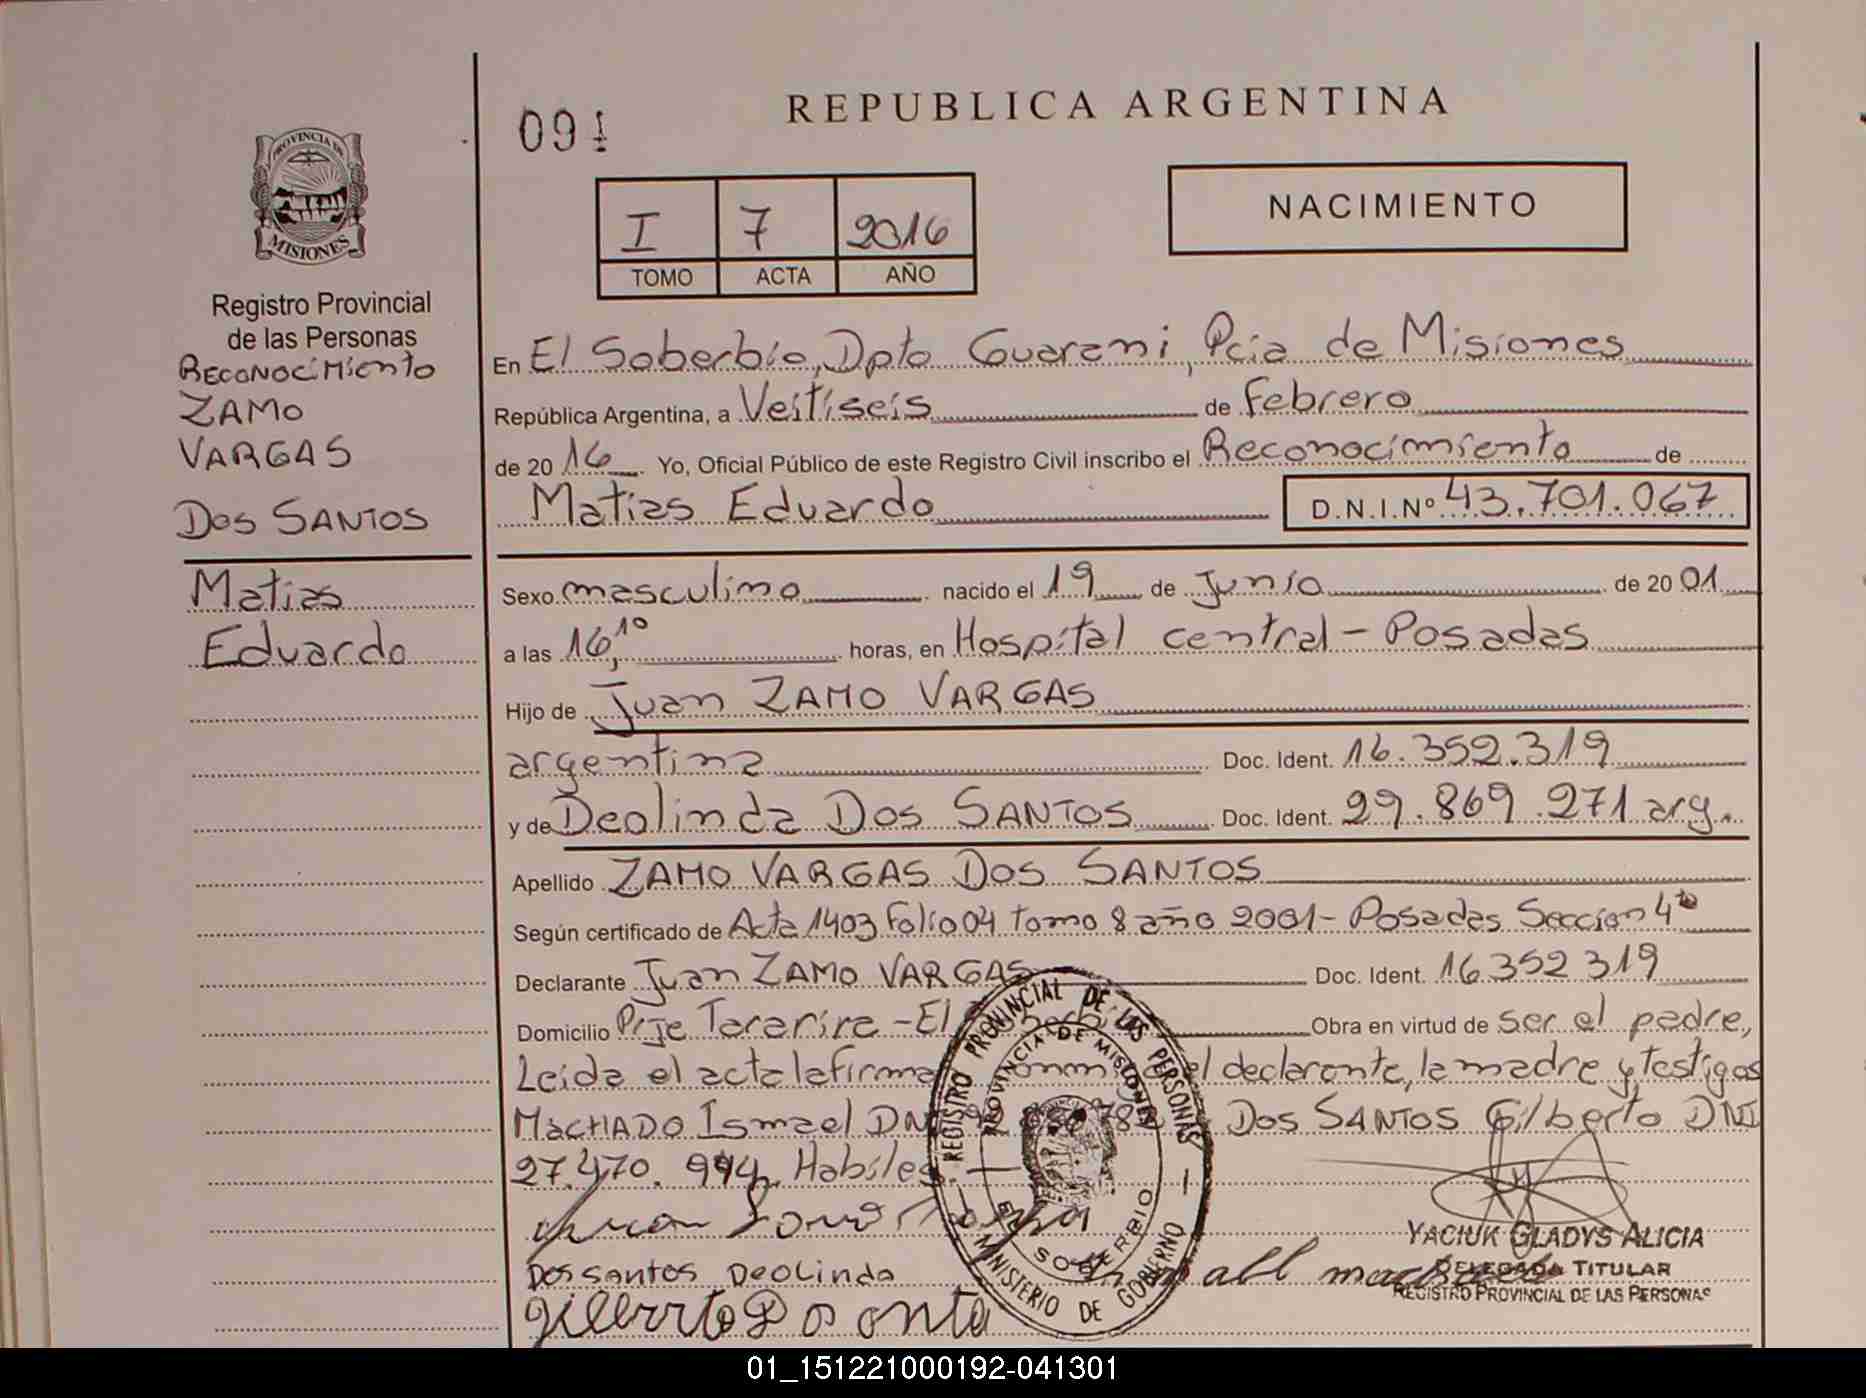 091
REPUBLICA ARGENTINA
PROVINCIA DE
MISIONES
I 7 2016
TOMO ACTA AÑO
NACIMIENTO
Registro Provincial
de las Personas
RECONOCIMIENTO
ZAMO
VARGAS
DOS SANTOS
Matias
Eduardo
En El Soberbio, Dpto Guarani, Pcia de Misiones
República Argentina, a Veitiseis de Febrero
de 2016 Yo, Oficial Público de este Registro Civil inscribo el Reconocimiento de
Matias Eduardo D.N.I.Nº 43.701.067
Sexo masculino nacido el 19 de Junio de 2001
a las 16,10 horas, en Hospital central - Posadas
Hijo de Juan ZAMO VARGAS
argentina Doc. Ident. 16.352.319
y de Deolinda DOS SANTOS Doc. Ident. 29.869.271 arg.
Apellido ZAMO VARGAS DOS SANTOS
Según certificado de Acta 1403 Folio 04 Tomo 8 año 2001 - Posadas Seccion 4ta
Declarante Juan ZAMO VARGAS Doc. Ident. 16.352 319
Domicilio Prje Tararira - El Obra en virtud de ser el padre,
Leida el acta la firma el declarante, la madre y testigos
MACHADO Ismael DNI DOS SANTOS Gilberto DNI
27.470.994, Habiles. —
REGISTRO PROVINCIAL DE LAS PERSONAS
PROVINCIA DE MISIONES
EL SOBERBIO
MINISTERIO DE GOBIERNO
YACIUK GLADYS ALICIA
DELEGADA TITULAR
REGISTRO PROVINCIAL DE LAS PERSONAS
Dos santos Deolinda
01_151221000192-041301